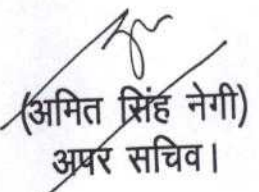 (अमित सिंह नेगी)
अपर सचिव।